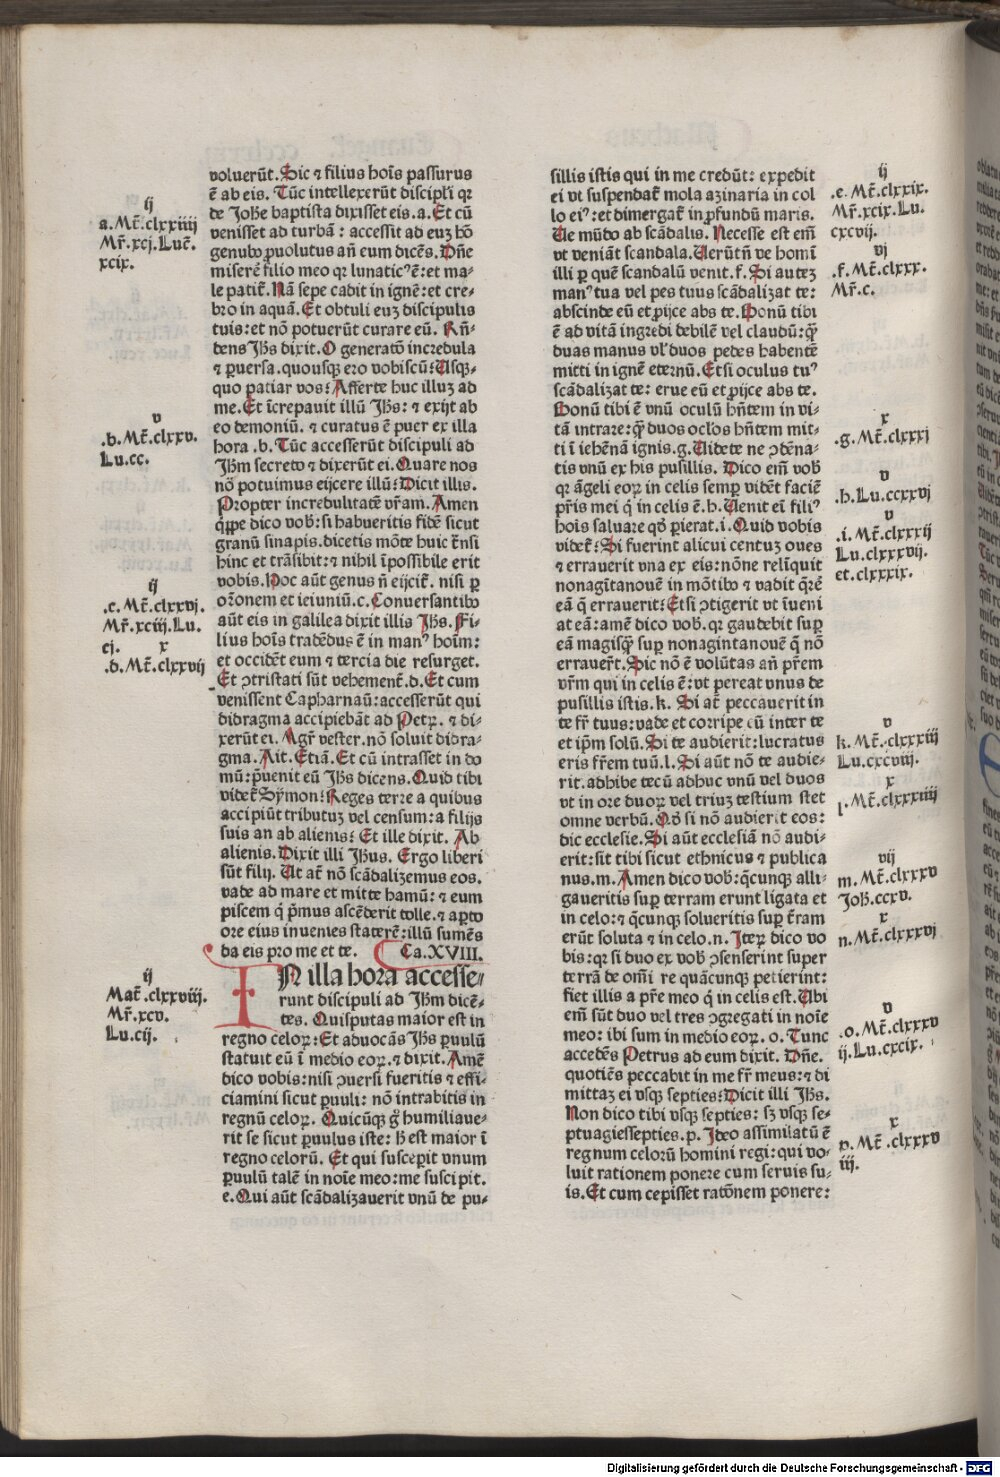 voluerūt. Sic ⁊ filius hoīs passurus
ē ab eis. Tūc intellexerūt discipl'i qꝛ
de Johe baptista dixisset eis. a. Et cū
venisset ad turbā : accessit ad euꝫ hō
genub ꝓuolutus an̄ eum dicēs. Dn̄e
miserē filio meo qꝛ lunatic⁹ ē: et ma⸗
le patit̄. Nā sepe cadit in ignē: et cre⸗
bro in aquā. Et obtuli euꝫ discipulis
tuis: et nō potuerūt curare eū. Rn̄⸗
dens Jhs dixit. O generatō incredula
⁊ ꝑuersa. quousqꝫ ero vobiscū: Usqꝫ⸗
quo patiar vos: Afferte huc illuꝫ ad
me. Et īcrepauit illū Jhs: ⁊ exijt ab
eo demoniū. ⁊ curatus ē puer ex illa
hora .b. Tūc accesserūt discipuli ad
Jhm secreto ⁊ dixerūt ei. Quare nos
nō potuimus eijcere illū: Dicit illis.
Propter incredulitatē vr̄am. Amen
qͥppe dico vob: si habueritis fidē sicut
granū sinapis. dicetis mōte huic t̄nsi
hinc et trāsibit: ⁊ nihil īpossibile erit
vobis. Hoc aūt genus n̄ eijcit̄. nisi ꝑ
or̄onem et ieiuniū. c. Conuersantib
aūt eis in galilea dixit illis Jhs. Fi⸗
lius hoīs tradēdus ē in man⁹ hoīm:
et occidēt eum ⁊ tercia die resurget.
Et ↄtristati sūt vehement̄. d. Et cum
venissent Capharnaū: accesserūt qui
didragma accipiebāt ad Petꝝ. ⁊ di⸗
xerūt ei. Mgr̄ vester. nō soluit didra⸗
gma. Ait. Etiā. Et cū intrasset in do
mū: p̄uenit eū Jhs dicens. Quid tibi
videt̄ Symon: Reges terre a quibus
accipiūt tributuꝫ vel censum: a filijs
suis an ab alienis: Et ille dixit. Ab
alienis. Dixit illi Jhus. Ergo liberi
sūt filij. Ut at̄ nō scādalizemus eos.
vade ad mare et mitte hamū: ⁊ eum
piscem qͥ pͥmus ascēderit tolle. ⁊ aꝑto
ore eius inuenies staterē: illū sumēs
da eis pro me et te. Ca. XVIII.
IN illa hora accesse⸗
runt discipuli ad Jhm dicē⸗
tes. Quisputas maior est in
regno celoꝝ: Et aduocās Jhs ꝑuulū
statuit eū ī medio eoꝝ. ⁊ dixit. Amē
dico vobis: nisi ↄuersi fueritis ⁊ effi⸗
ciamini sicut ꝑuuli: nō intrabitis in
regnū celoꝝ. Quicūqꝫ g̊ humiliaue⸗
rit se sicut ꝑuulus iste: h̄ est maior ī
regno celorū. Et qui susceꝑit vnum
ꝑuulū talē in noīe meo: me suscipit.
e. Qui aūt scādalizauerit vnū de pu⸗
sillis istis qui in me credūt: expedit
ei vt suspendat̄ mola azinaria in col
lo ei⁹: et dimergat̄ in ꝓfundū maris.
Ue mūdo ab scādalis. Necesse est em̄
vt veniāt scandala. Uerūtn̄ ve homi
illi ꝑ quē scandalū venit. f. Si auteꝫ
man⁹ tua vel pes tuus scādalizat te:
abscinde eū et ꝓijce abs te. Bonū tibi
ē ad vitā ingredi debilē vel claudū: qͣꝫ
duas manus vl' duos pedes habentē
mitti in ignē eternū. Etsi oculus tu⁹
scādalizat te: erue eū et ꝓijce abs te.
Bonū tibi ē vnū oculū hn̄tem in vi⸗
tā intrare: qͣꝫ duos oclos hn̄tem mit⸗
ti ī iehēnā ignis. g. Uidete ne ↄdēna⸗
tis vnū ex his pusillis. Dico em̄ vob
qꝛ āgeli eoꝝ in celis semꝑ vidēt faciē
pr̄is mei qͥ in celis ē. h. Uenit ei fili⁹
hois saluare qd̓ pierat. i. Quid vobis
videt̄: Si fuerint alicui centuꝫ oues
⁊ errauerit vna ex eis: nōne relīquit
nonagītanouē in mōtib ⁊ vadit qͣrē
eā q̄ errauerit: Etsi ↄtigerit vt īueni
at eā: amē dico vob. qꝛ gaudebit suꝑ
eā magisqͣꝫ suꝑ nonagintanouē q̄ nō
errauer̄t. Sic nō ē volūtas an̄ pr̄em
vr̄m qui in celis ē: vt pereat vnus de
pusillis istis. k. Si at̄ peccauerit in
te fr̄ tuus: vade et corripe eū inter te
et ip̄m solū. Si te audierit: lucratus
eris fr̄em tuū. l. Si aūt nō te audie⸗
rit. adhibe tecū adhuc vnū vel duos
vt in ore duoꝝ vel triuꝫ testium stet
omne verbū. Qd̓ si nō audierit eos:
dic ecclesie. Si aūt ecclesiā nō audi⸗
erit: sit tibi sicut ethnicus ⁊ publica
nus. m. Amen dico vob: qͤcunqꝫ alli⸗
gaueritis suꝑ terram erunt ligata et
in celo: ⁊ qͤcunqꝫ solueritis suꝑ t̄ram
erūt soluta ⁊ in celo. n. Iteꝝ dico vo
bis: qꝛ si duo ex vob ↄsenserint super
terrā de om̄i re quācunqꝫ petierint:
fiet illis a pr̄e meo qͥ in celis est. Ubi
em̄ sūt duo vel tres ↄgregati in noīe
meo: ibi sum in medio eoꝝ. o. Tunc
accedēs Petrus ad eum dixit. Dn̄e.
quotiēs peccabit in me fr̄ meus: ⁊ di
mittaꝫ ei vsqꝫ septies: Dicit illi Jhs.
Non dico tibi vsqꝫ septies: sꝫ vsqꝫ se⸗
ptuagiessepties. p. Ideo assimilatū ē
regnum celorū homini regi: qui vo⸗
luit rationem ponere cum seruis su⸗
is. Et cum cepisset ratōnem ponere:
ij
a. Mt̄. clxxiiij
Mr̄. xcj. Luc̄.
xcix.
v
.b. Mt̄. clxxv.
Lu. cc.
ij
.c. Mt̄. clxxvj.
Mr̄. xciij. Lu.
cj. x
.d. Mt̄. clxxvij
ij
Mat̄. clxxviij.
Mr̄. xcv.
Lu. cij.
ij
.e. Mt̄. clxxix.
Mr̄. xcix. Lu.
cxcvij.
vj
.f. Mt̄. clxxx.
Mr̄. c.
x
.g. Mt̄. clxxxj
v
.h. Lu. ccxxvj
v
.i. Mt̄. clxxxij
Lu. clxxxvij.
et. clxxxix.
v
k. Mt̄. clxxxiij
Lu. cxcviij.
x
l. Mt̄. clxxxiiij
vij
m. Mt̄. clxxxv
Joh. ccxv.
x
n. Mt̄. clxxxvj
v
.o. Mt̄. clxxxv
ij. Lu. cxcix.
x
p. Mt̄. clxxxv
iij.
Digitalisierung gefördert durch die Deutsche Forschungsgemeinschaft - DFG